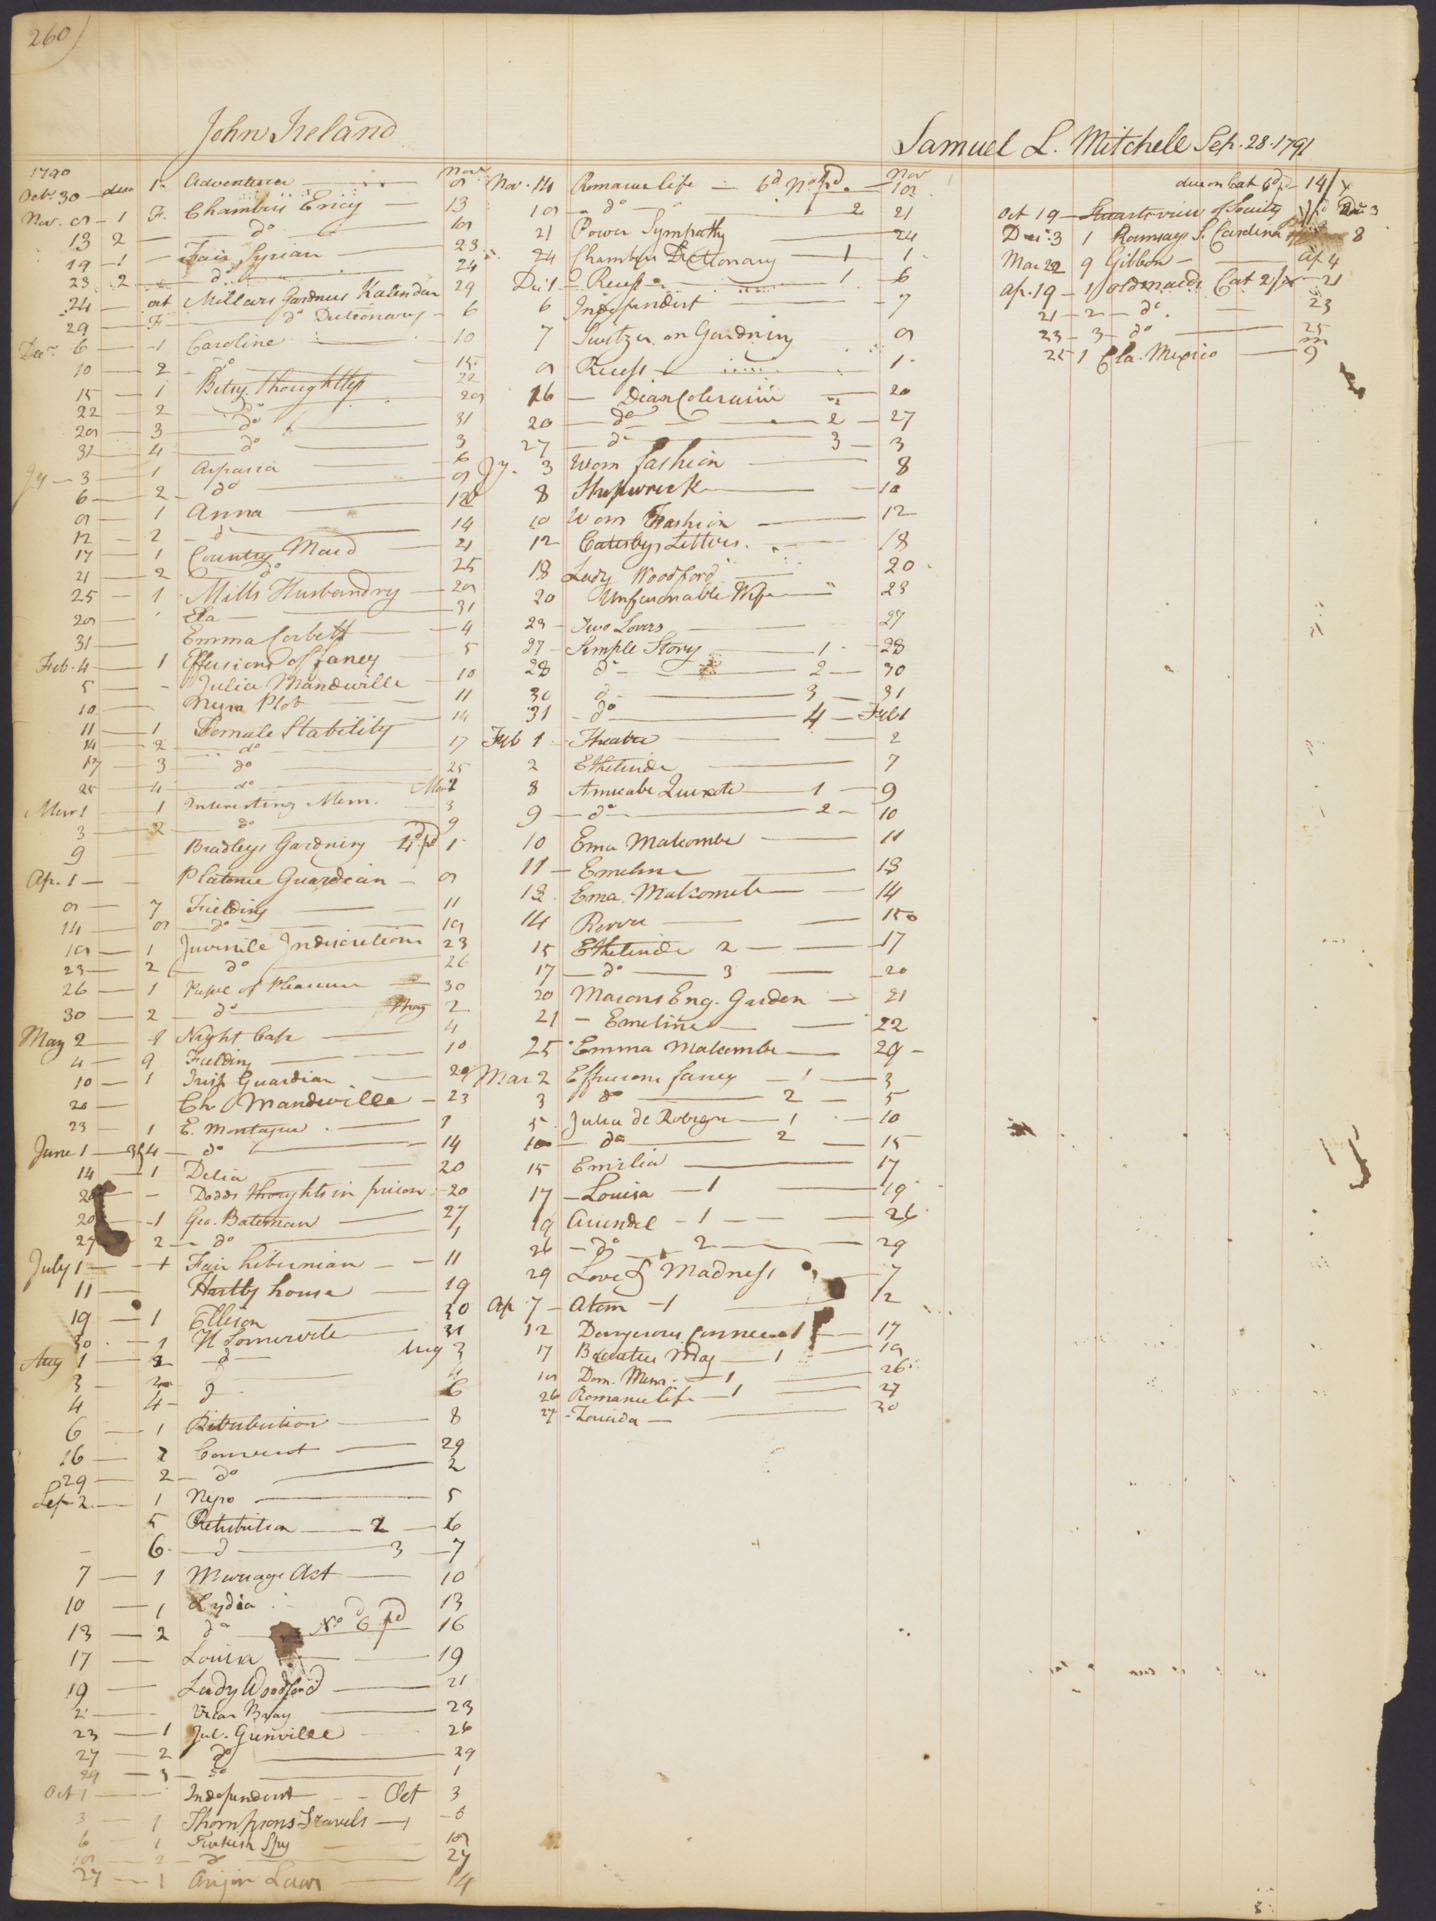 260
John Ireland
1790
Octr. 30 — 1 Adventurer — Novr. 9
Nov. 9 — 1 F. Chambers Ency — 13
13 2 — do — 19
19 — 1 — Fair Syrian — 23
23 2 — do — 24
24 — oct Millars Gardners Kalendar 29
29 — F — do Dictionary — 6
Decr. 6 — 1 Caroline — 10
10 — 2 — do — 15
15 — 1 Betsy Thoughtless 22
22 — 2 — do — 29
29 — 3 — do — 31
31 — 4 — do — 3
Jy — 3 — 1 Aspasia — 6
6 — 2 — do — 9
9 — 1 Anna — 12
12 — 2 — do — 14
17 — 1 Country Maid — 21
21 — 2 — do — 25
25 — 1 Mills Husbandry — 29
29 — Ela — 31
31 — Emma Corbett — 4
Feb. 4 — 1 Effusions of fancy — 5
5 — Julia Mandeville — 10
10 — Myra Plot — 11
11 — 1 Female Stability 14
14 — 2 — do — 17
17 — 3 — do — 25
25 — 4 — do — Mar 1
Mar 1 — 1 Interesting Mem. — 3
3 — 2 — do — 9
9 — Bradleys Gardning pd 1
Ap. 1 — Platonic Guardean — 9
9 — 7 Fielding — 11
14 — 9 — do — 19
19 — 1 Juvenile Indiscretions 23
23 — 2 — do — 26
26 — 1 Pupil of Pleasure — 30
30 — 2 — do — May 2
May 2 — 8 Night Cap — 4
4 — 9 Fielding — 10
10 — 1 Irish Guardian — 20
20 — Ch Mandeville — 23
23 — 1 E. Montague — 1
June 1 — 4 — do — 14
14 — 1 Delia — 20
20 — Dodds thoughts in prison — 20
20 — 1 Geo. Bateman — 27
27 — 2 — do — 1
July 1 — Fair hibernian — 11
11 — Hartly house — 19
19 — 1 Ellison — 30
30 — 1 W Somervile — 31
Aug 1 — 2 — d — Aug 3
3 — d — 4
4 — 4 — d — 6
6 — 1 Retribution — 8
16 — 2 Convent — 29
29 — 2 — do — 2
Sep 2 — 1 Nepo — 5
5 Retribution — 2 — 6
6 — d — 3 — 7
7 — 1 Marriage Act — 10
10 — 1 Lydia — 13
13 — 2 do — No 6d pd 16
17 — Louisa — 19
19 — Lady Woodford — 21
21 — Vicar Bray — 23
23 — 1 Jul. Grenville — 26
27 — 2 do — 29
29 — 3 — do — 1
Oct 1 — Independent — Oct 3
3 — 1 Thompsons Travels — 6
6 — 1 Turkish Spy — 19
19 — 2 — do — 27
27 — 1 Laws — 4
Nov. 14 Romance life — 6d No pd. — Nov 19
19 — do — 2 21
21 Power Sympathy — 24
24 Chambers Dictionary — 1 — 1
Dec. 1 — Recess — 1 — 6
6 Independent — 7
7 Switzer on Gardning 9
9 Recess — 1
16 — Dean Coleraine — 20
20 — do — 2 — 27
27 — do — 3 — 3
Jy. 3 Worn fashion — 8
8 Shipwreck — 10
10 Worn Fashion — 12
12 Catesbys Letters — 18
18 Lady Woodford 20
20 Unfasionable Wife — 23
23 — Two Lovers — 27
27 — Simple Story — 1 — 28
28 do — 2 — 30
30 do — 3 — 31
31 — do — 4 — Feb 1
Feb 1 — Theatre — 2
2 Ethelinde — 7
8 Amicabe Quixote — 1 — 9
9 — do — 2 — 10
10 Ema Malcombe — 11
11 — Emeline — 13
13 Ema Malcombe — 14
14 — 15
15 Ethelinde 2 — 17
17 — do — 3 — 20
20 Masons Eng. Garden — 21
21 — Emeline — 22
25 Emma Malcombe — 29
Mar 2 Effusions fancy — 1 — 3
3 do — 2 — 5
5 Julia de Robigne — 1 — 10
10 — do — 2 — 15
15 Emilia — 17
17 — Louisa — 1 — 19
19 Arundel — 1 — 26
26 — do — 2 — 29
29 Love & Madness — 7
Ap. 7 — Atom — 1 — 12
12 Dangerous Connecns 1 — 17
17 — 1 — 19
19 Dom. Mem. — 1 — 26
26 Romance life — 1 — 27
27 — — 30
Samuel L. Mitchell Sep. 28. 1791
due on Cat 6d pd — 14/
Oct 19 — Stuarts view of Society — Dec 3
Decr. 3 1 Ramsays S. Carolina — 8
Mar 22 9 Gibbon — Ap 4
Ap. 19 — 1 old maids Cat — 21
21 — 2 — do. — 23
23 — 3 — do — 25
25 1 Cla. Mexico — 9